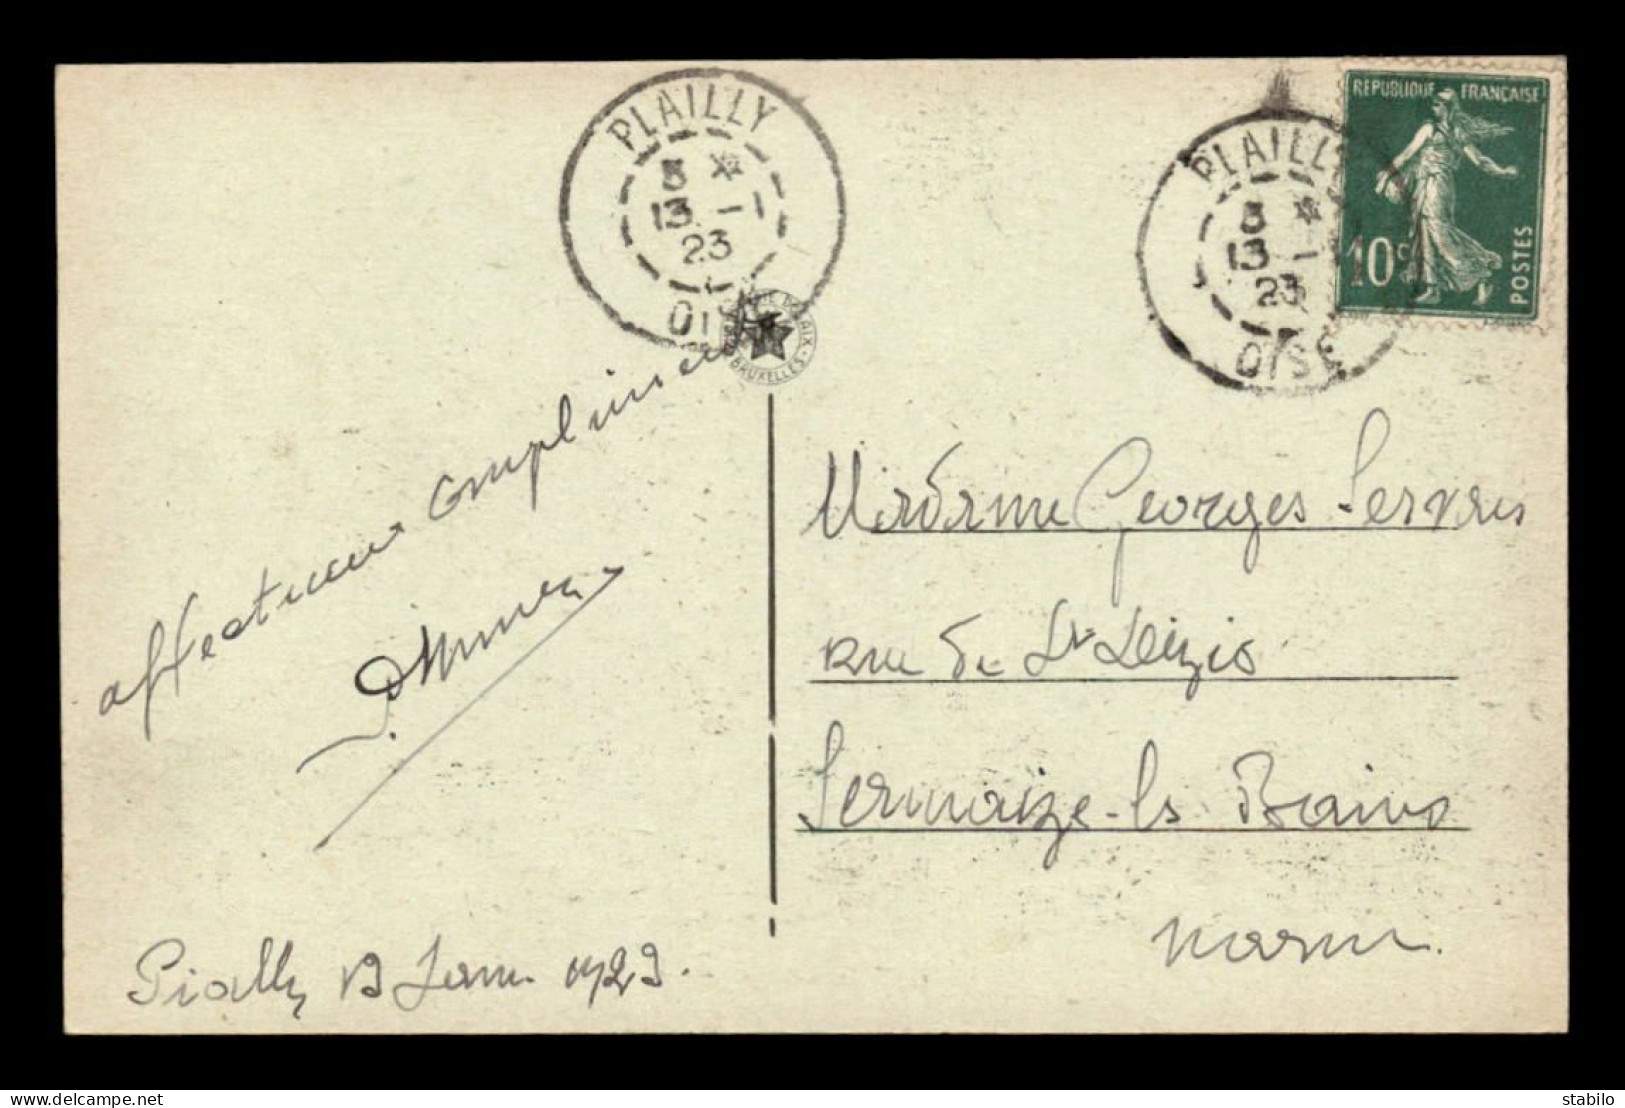 PLAILLY
3 *
13 - 1
23
OISE
PLAILLY
3 *
13 - 1
23
OISE
REPUBLIQUE FRANÇAISE
10c
POSTES
BRUXELLES
affectueux compliments
Madame Georges Servais
rue de
Sermaize-les Bains
Marne.
Plailly 13 Janv. 1923.
delcampe.net
stabilo